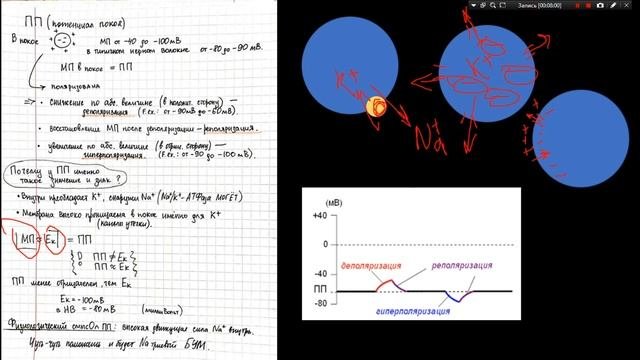 ПП (потенциал покоя)
В покое МП от -40 до -100 мВ
в типичном нервном волокне от -80 до -90 мВ.
МП в покое = ПП
поляризована
снижение по абс. величине (в полож. сторону) —
деполяризация (F.ex.: от -90мВ до -60мВ).
• восстановление МП после деполяризации — реполяризация.
• увеличение по абс. величине (в отриц. сторону) —
гиперполяризация (F.ex.: от -90 до -100 мВ).
Почему у ПП именно
такое значение и знак?
• Внутри преобладает K⁺, снаружи Na⁺ (Na⁺/K⁺-АТФаза МОГЁТ)
• Мембрана высоко проницаема в покое именно для K⁺
(каналы утечки).
|МП ≈ Eк| = ПП
ПП ≠ Eк
ПП ≈ Eк
ПП менее отрицателен, чем Eк
Eк = -100мВ
в НВ = -80мВ
Физиологический смысОл ПП: высокая движущая сила Na⁺ внутрь.
Чуть-чуть поменяется и будет Na триевый БУМ.
Запись [00:08:00]
K+
K+
Na
(мВ)
+40
0
-40
ПП
-80
деполяризация
реполяризация
гиперполяризация